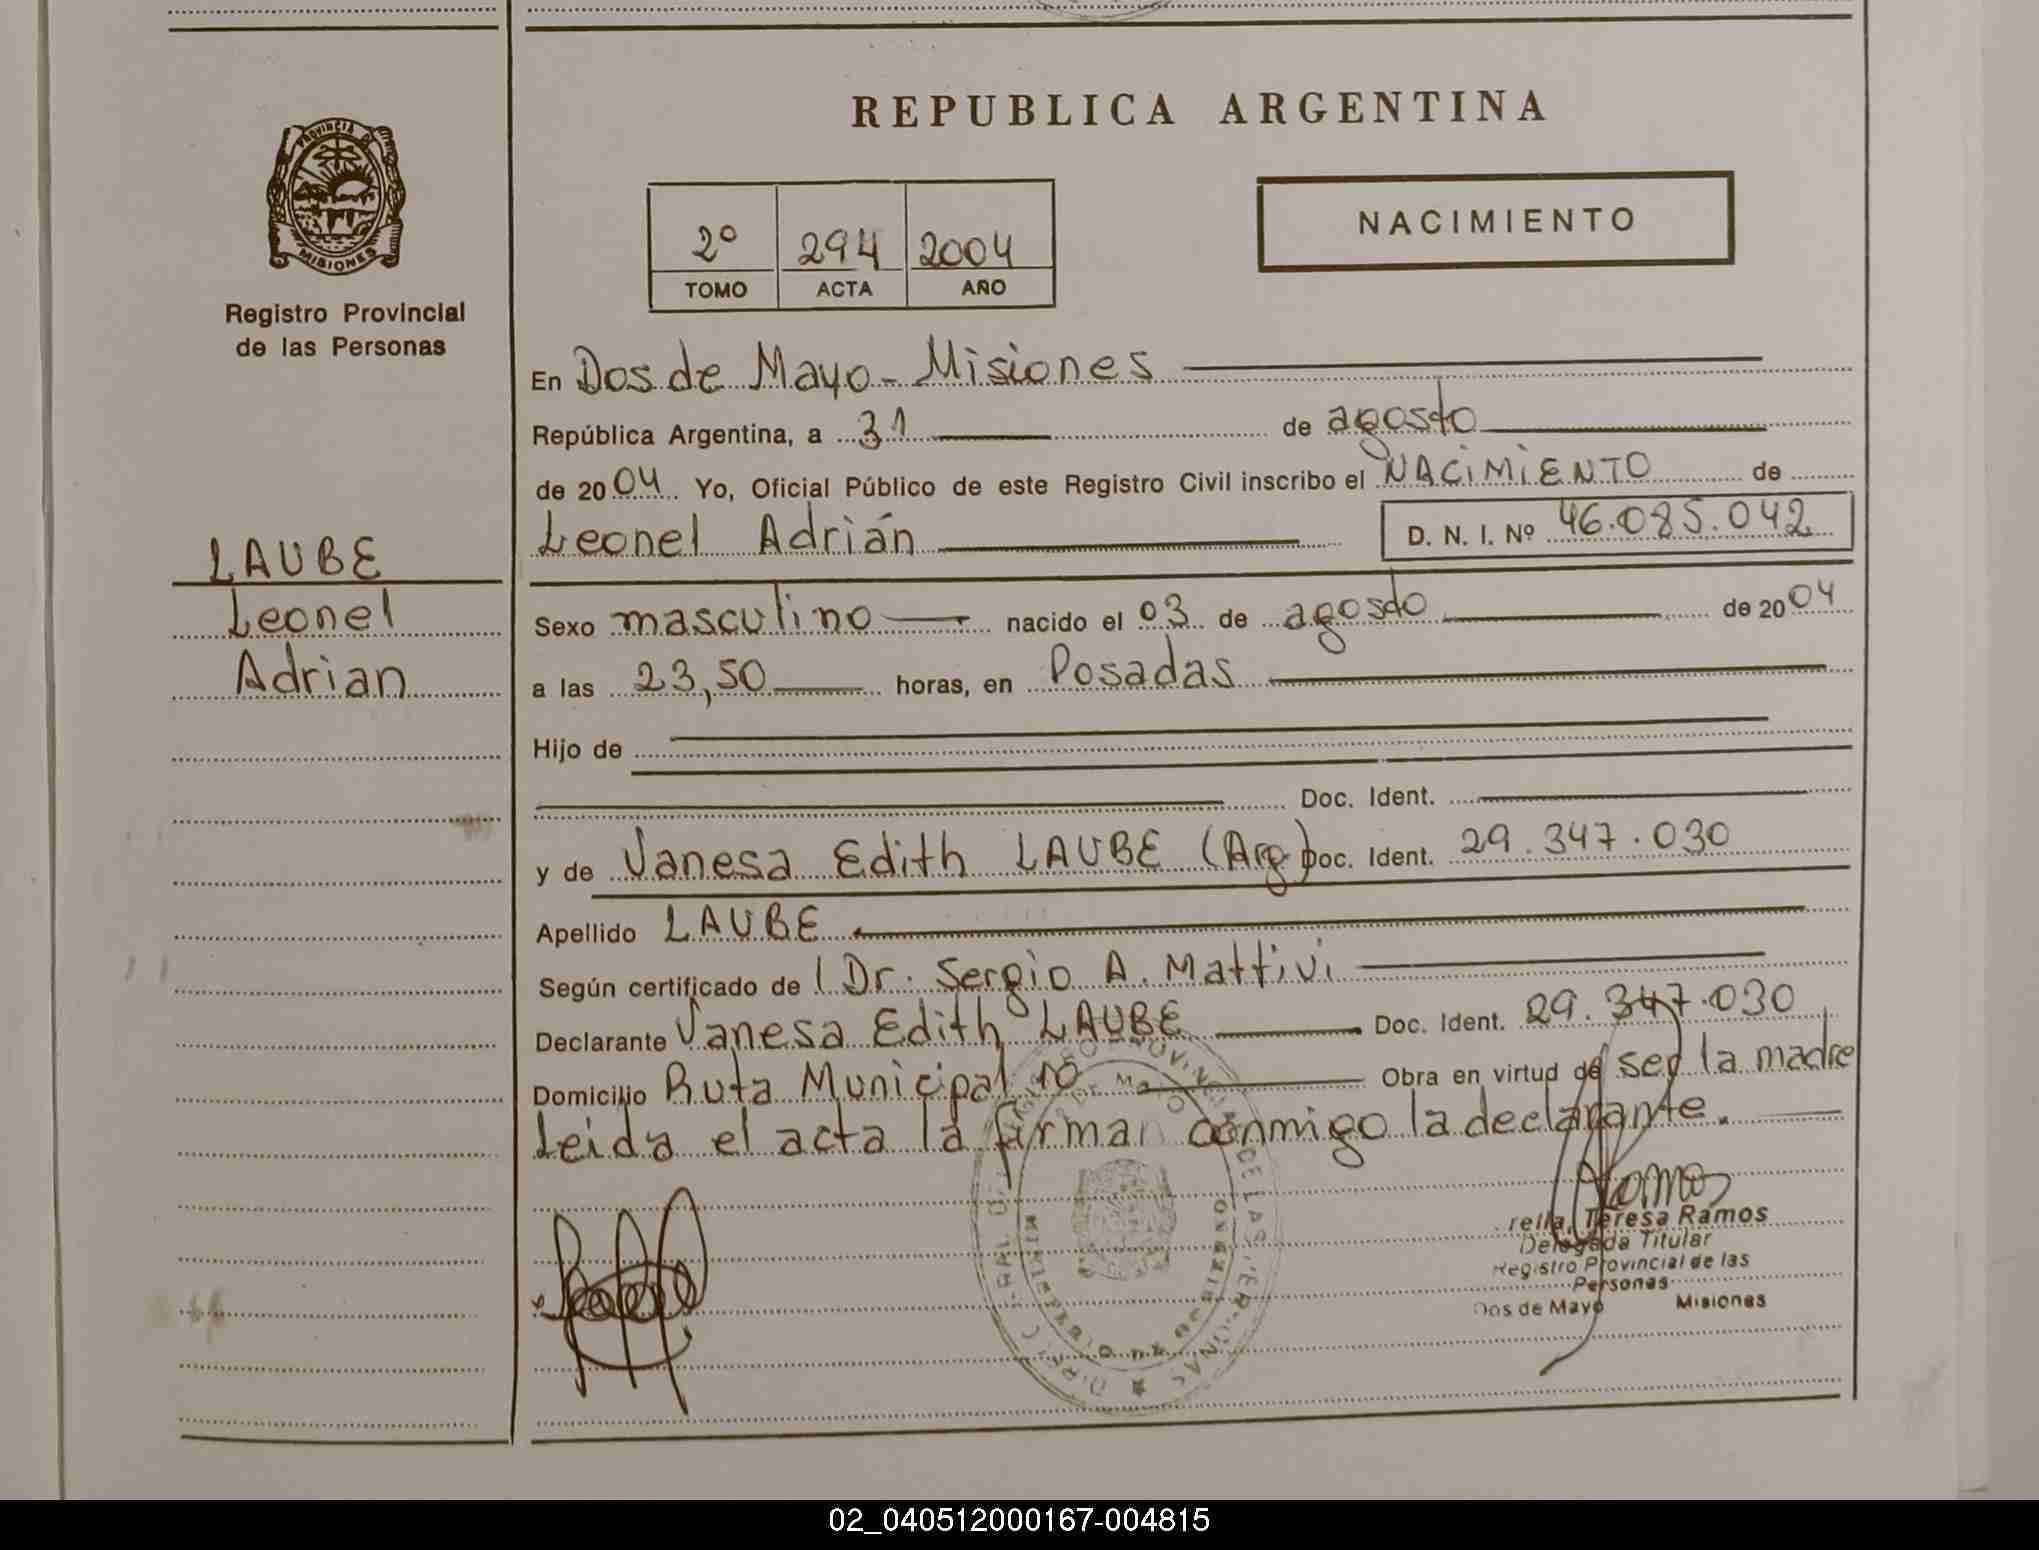 REPUBLICA ARGENTINA
PROVINCIA DE
MISIONES
Registro Provincial
de las Personas
2º 294 2004
TOMO ACTA AÑO
NACIMIENTO
En Dos de Mayo - Misiones
República Argentina, a 31 de agosto
de 2004 Yo, Oficial Público de este Registro Civil inscribo el NACIMIENTO de
Leonel Adrián D. N. I. Nº 46.085.042
LAUBE
Leonel
Adrian
Sexo masculino nacido el 03 de agosto de 2004
a las 23,50 horas, en Posadas
Hijo de
Doc. Ident.
y de Vanesa Edith LAUBE (Arg) Doc. Ident. 29.347.030
Apellido LAUBE
Según certificado de Dr. Sergio A. Mattivi
Declarante Vanesa Edith LAUBE Doc. Ident. 29.347.030
Domicilio Ruta Municipal 10 Obra en virtud de ser la madre
Leida el acta la firma conmigo la declarante.
Teresa Ramos
Delegada Titular
Registro Provincial de las
Personas
Dos de Mayo Misiones
02_040512000167-004815